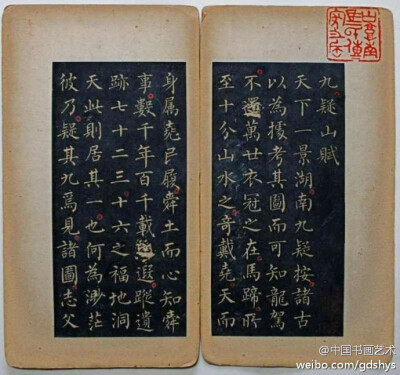 九疑山賦
天下一景湖南九疑按諸古
以為據考其圖而可知龍駕
不還萬世衣冠之在馬蹄所
至十分山水之奇戴堯天而
身属堯民履舜土而心知舜
事數千年百千載遐蹤遺
跡七十二三十六之福地洞
天此則居其一也何為渺茫
彼乃疑其九焉見諸圖志父
@中国书画艺术
weibo.com/gdshys